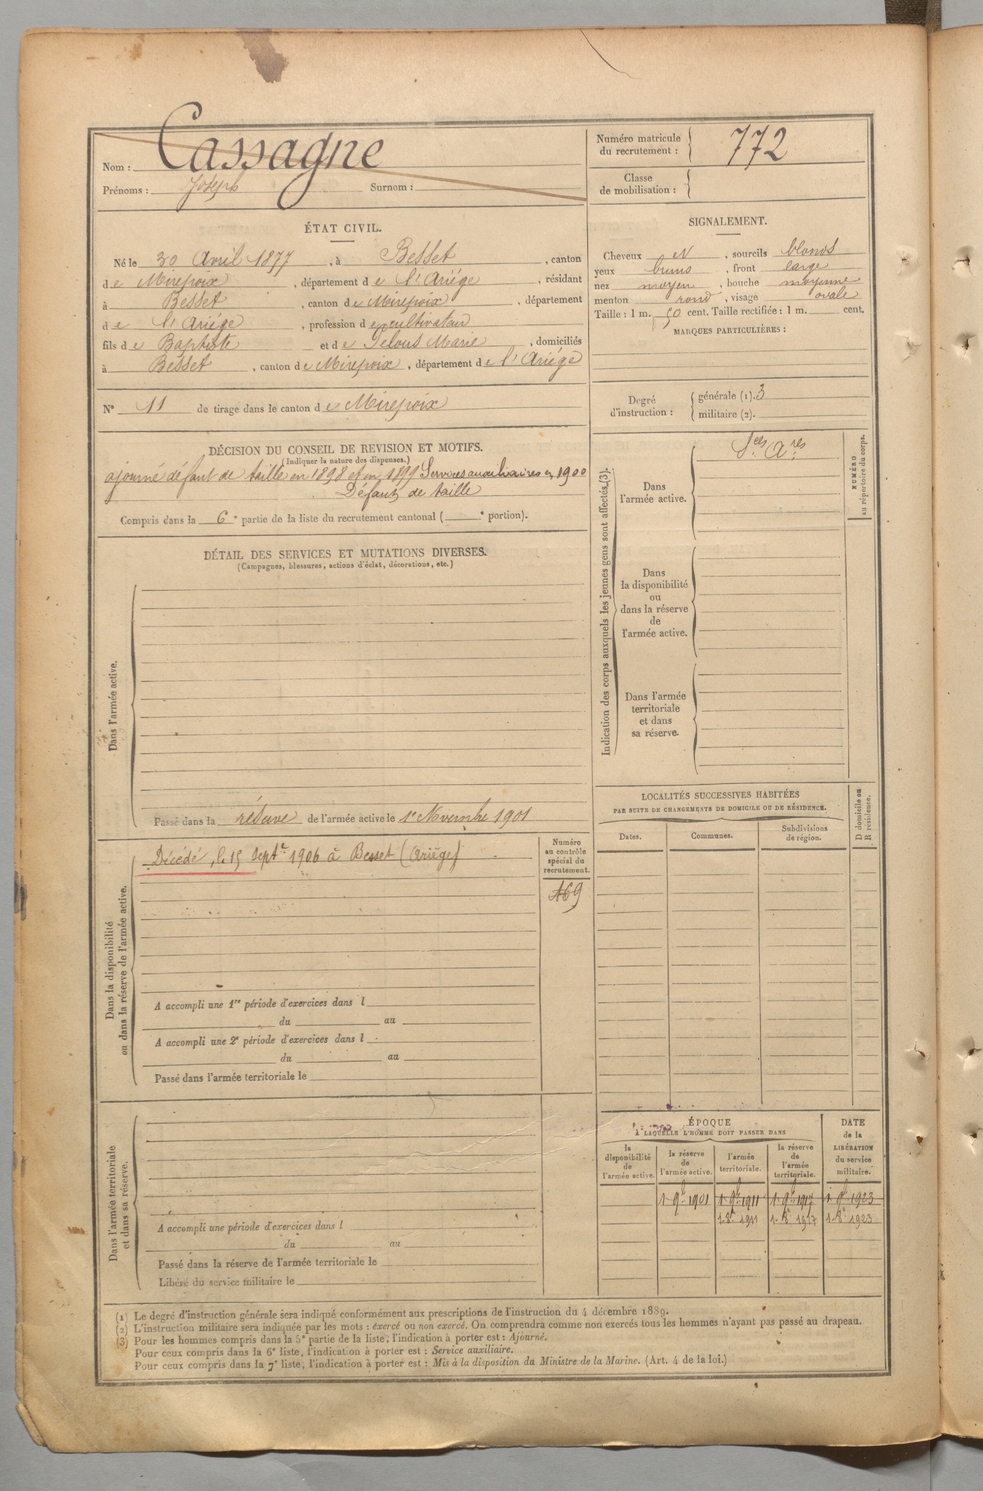 Nom : Cassagne
Prénoms : Joseph Surnom :
Numéro matricule du recrutement : 772
Classe de mobilisation :
ÉTAT CIVIL.
Né le 30 Avril 1877, à Besset, canton
de Mirepoix, département de l'Ariége, résidant
à Besset, canton de Mirepoix, département
de l'Ariége, profession de cultivateur
fils de Baptiste et de Pélous Marie, domiciliés
à Besset, canton de Mirepoix, département de l'Ariége
N° 11 de tirage dans le canton de Mirepoix
SIGNALEMENT.
Cheveux N, sourcils blonds
yeux bruns, front large
nez moyen, bouche moyenne
menton rond, visage ovale
Taille : 1 m. 50 cent. Taille rectifiée : 1 m. cent.
MARQUES PARTICULIÈRES :
Degré d'instruction : générale (1). 3
militaire (2).
DÉCISION DU CONSEIL DE REVISION ET MOTIFS.
(Indiquer la nature des dispenses.)
ajourné défaut de taille en 1898 et en 1899 Services auxiliaires en 1900
Défaut de taille
Compris dans la 6e partie de la liste du recrutement cantonal ( e portion).
DÉTAIL DES SERVICES ET MUTATIONS DIVERSES.
(Campagnes, blessures, actions d'éclat, décorations, etc.)
Dans l'armée active.
Passé dans la réserve de l'armée active le 1er Novembre 1901
Dans la disponibilité
ou dans la réserve de l'armée active.
Décédé, le 15 Septre 1906 à Besset (Ariège)
Numéro
au contrôle
spécial du
recrutement.
169
A accompli une 1re période d'exercices dans l
du au
A accompli une 2e période d'exercices dans l
du au
Passé dans l'armée territoriale le
Dans l'armée territoriale
et dans sa réserve.
A accompli une période d'exercices dans l
du au
Passé dans la réserve de l'armée territoriale le
Libéré du service militaire le
Indication des corps auxquels les jeunes gens sont affectés (3).
NUMÉRO
au répertoire du corps.
Dans
l'armée active.
Sces Ares
Dans
la disponibilité
ou
dans la réserve
de
l'armée active.
Dans l'armée
territoriale
et dans
sa réserve.
LOCALITÉS SUCCESSIVES HABITÉES
PAR SUITE DE CHANGEMENTS DE DOMICILE OU DE RÉSIDENCE.
D domicile ou
R résidence.
Dates. Communes. Subdivisions de région.
ÉPOQUE
A LAQUELLE L'HOMME DOIT PASSER DANS
DATE
de la
LIBÉRATION
du service
militaire.
la disponibilité de l'armée active.
la réserve de l'armée active.
l'armée territoriale.
la réserve de l'armée territoriale.
1 9bre 1901 1 9bre 1911 1 9bre 1917 1 9bre 1923
1 8bre 1911 1 8bre 1917 1 8bre 1923
(1) Le degré d'instruction générale sera indiqué conformément aux prescriptions de l'instruction du 4 décembre 1889.
(2) L'instruction militaire sera indiquée par les mots : exercé ou non exercé. On comprendra comme non exercés tous les hommes n'ayant pas passé au drapeau.
(3) Pour les hommes compris dans la 5e partie de la liste, l'indication à porter est : Ajourné.
Pour ceux compris dans la 6e liste, l'indication à porter est : Service auxiliaire.
Pour ceux compris dans la 7e liste, l'indication à porter est : Mis à la disposition du Ministre de la Marine. (Art. 4 de la loi.)